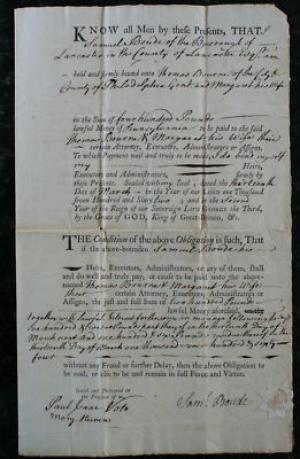 KNOW all Men by these Presents, THAT I
Samuel Boude of the Borrough of
Lancaster in the County of Lancaster Esqr. am
held and firmly bound unto Thomas Bourne of the City &
County of Philadelphia Gent. and Margaret his Wife
in the Sum of four hundred Pounds
lawful Money of Pennsylvania to be paid to the said
Thomas Bourne & Margaret his Wife their
certain Attorney, Executors, Administrators or Assigns.
To which Payment well and truly to be made, I do bind myself
my Heirs,
Executors and Administrators, firmly by
these Presents. Sealed with my Seal, dated the thirteenth
Day of March in the Year of our Lord one Thousand
seven Hundred and Sixty two, and in the second
Year of the Reign of our Sovereign Lord George the Third,
by the Grace of GOD, King of Great-Britain, &c.
THE Condition of the above Obligation is such, That
if the above-bounden Samuel Boude his
Heirs, Executors, Administrators, or any of them, shall
and do well and truly pay, or cause to be paid unto the above-
named Thomas Bourne & Margaret his Wife
their certain Attorney, Executors, Administrators or
Assigns, the just and full Sum of two hundred Pounds
lawful Money aforesaid,
together with lawful Interest for the same in manner following
one hundred Pounds part thereof on the thirteenth Day of
March next and one hundred Pounds residue thereof on the
thirteenth Day of March one thousand seven hundred & sixty
four
without any Fraud or further Delay, then the above Obligation
to be void, or else to be and remain in full Force and Virtue.
Sealed and Delivered
in the Presence of us
Paul Isaac Voto
Mary
Saml. Boude